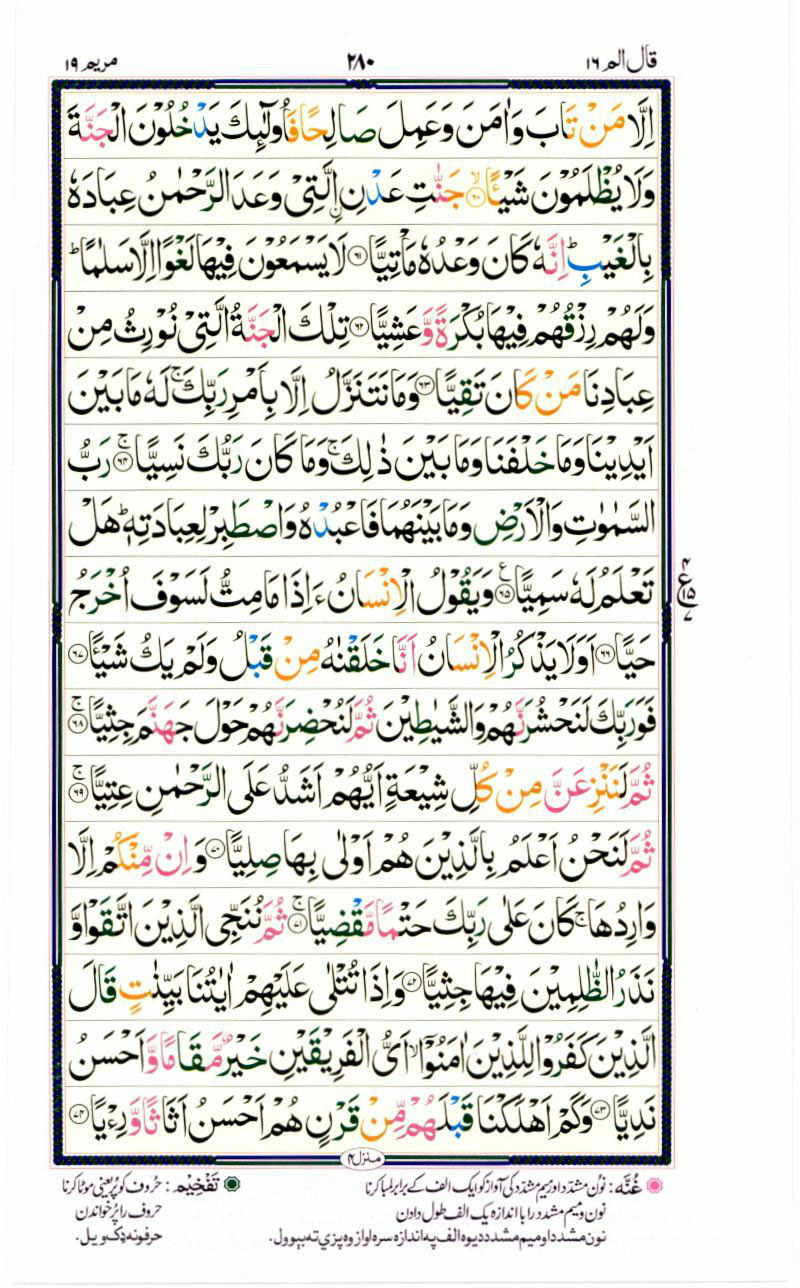 قال الم ١٦ ٢٨٠ مريم ١٩
اِلَّا مَنْ تَابَ وَاٰمَنَ وَعَمِلَ صَالِحًا فَاُولٰٓئِكَ يَدْخُلُوْنَ الْجَنَّةَ
وَلَا يُظْلَمُوْنَ شَيْـًٔا ۙ﴿٦٠﴾ جَنّٰتِ عَدْنِ ِۨالَّتِيْ وَعَدَ الرَّحْمٰنُ عِبَادَهٗ
بِالْغَيْبِ ؕ اِنَّهٗ كَانَ وَعْدُهٗ مَاْتِيًّا ﴿٦١﴾ لَا يَسْمَعُوْنَ فِيْهَا لَغْوًا اِلَّا سَلٰمًا ؕ
وَلَهُمْ رِزْقُهُمْ فِيْهَا بُكْرَةً وَّعَشِيًّا ﴿٦٢﴾ تِلْكَ الْجَنَّةُ الَّتِيْ نُوْرِثُ مِنْ
عِبَادِنَا مَنْ كَانَ تَقِيًّا ﴿٦٣﴾ وَمَا نَتَنَزَّلُ اِلَّا بِاَمْرِ رَبِّكَ ۚ لَهٗ مَا بَيْنَ
اَيْدِيْنَا وَمَا خَلْفَنَا وَمَا بَيْنَ ذٰلِكَ ۚ وَمَا كَانَ رَبُّكَ نَسِيًّا ۚ﴿٦٤﴾ رَبُّ
السَّمٰوٰتِ وَالْاَرْضِ وَمَا بَيْنَهُمَا فَاعْبُدْهُ وَاصْطَبِرْ لِعِبَادَتِهٖ ؕ هَلْ
تَعْلَمُ لَهٗ سَمِيًّا ﴿٦٥﴾ ع وَيَقُوْلُ الْاِنْسَانُ ءَاِذَا مَا مِتُّ لَسَوْفَ اُخْرَجُ
٤ ع ١٥ ٧
حَيًّا ﴿٦٦﴾ اَوَلَا يَذْكُرُ الْاِنْسَانُ اَنَّا خَلَقْنٰهُ مِنْ قَبْلُ وَلَمْ يَكُ شَيْـًٔا ﴿٦٧﴾
فَوَرَبِّكَ لَنَحْشُرَنَّهُمْ وَالشَّيٰطِيْنَ ثُمَّ لَنُحْضِرَنَّهُمْ حَوْلَ جَهَنَّمَ جِثِيًّا ۚ﴿٦٨﴾
ثُمَّ لَنَنْزِعَنَّ مِنْ كُلِّ شِيْعَةٍ اَيُّهُمْ اَشَدُّ عَلَى الرَّحْمٰنِ عِتِيًّا ۚ﴿٦٩﴾
ثُمَّ لَنَحْنُ اَعْلَمُ بِالَّذِيْنَ هُمْ اَوْلٰى بِهَا صِلِيًّا ﴿٧٠﴾ وَاِنْ مِّنْكُمْ اِلَّا
وَارِدُهَا ۚ كَانَ عَلٰى رَبِّكَ حَتْمًا مَّقْضِيًّا ۚ﴿٧١﴾ ثُمَّ نُنَجِّي الَّذِيْنَ اتَّقَوْا وَّ
نَذَرُ الظّٰلِمِيْنَ فِيْهَا جِثِيًّا ﴿٧٢﴾ وَاِذَا تُتْلٰى عَلَيْهِمْ اٰيٰتُنَا بَيِّنٰتٍ قَالَ
الَّذِيْنَ كَفَرُوْا لِلَّذِيْنَ اٰمَنُوْٓا ۙ اَيُّ الْفَرِيْقَيْنِ خَيْرٌ مَّقَامًا وَّاَحْسَنُ
نَدِيًّا ﴿٧٣﴾ وَكَمْ اَهْلَكْنَا قَبْلَهُمْ مِّنْ قَرْنٍ هُمْ اَحْسَنُ اَثَاثًا وَّرِءْيًا ﴿٧٤﴾
منزل ٤
غُنّه : نون مشدد اور میم مشدد کی آواز کو ایک الف کے برابر لمبا کرنا تَفْخِیْم : حُروف کو پُر یعنی موٹا کرنا
نون و میم مشدد را با اندازہ یک الف طول دادن حروف را پُر خواندن
نون مشدد او میم مشدد دیوہ الف په اندازه سره اواز وه پزي ته بېوول. حرفونه ډک ویل.